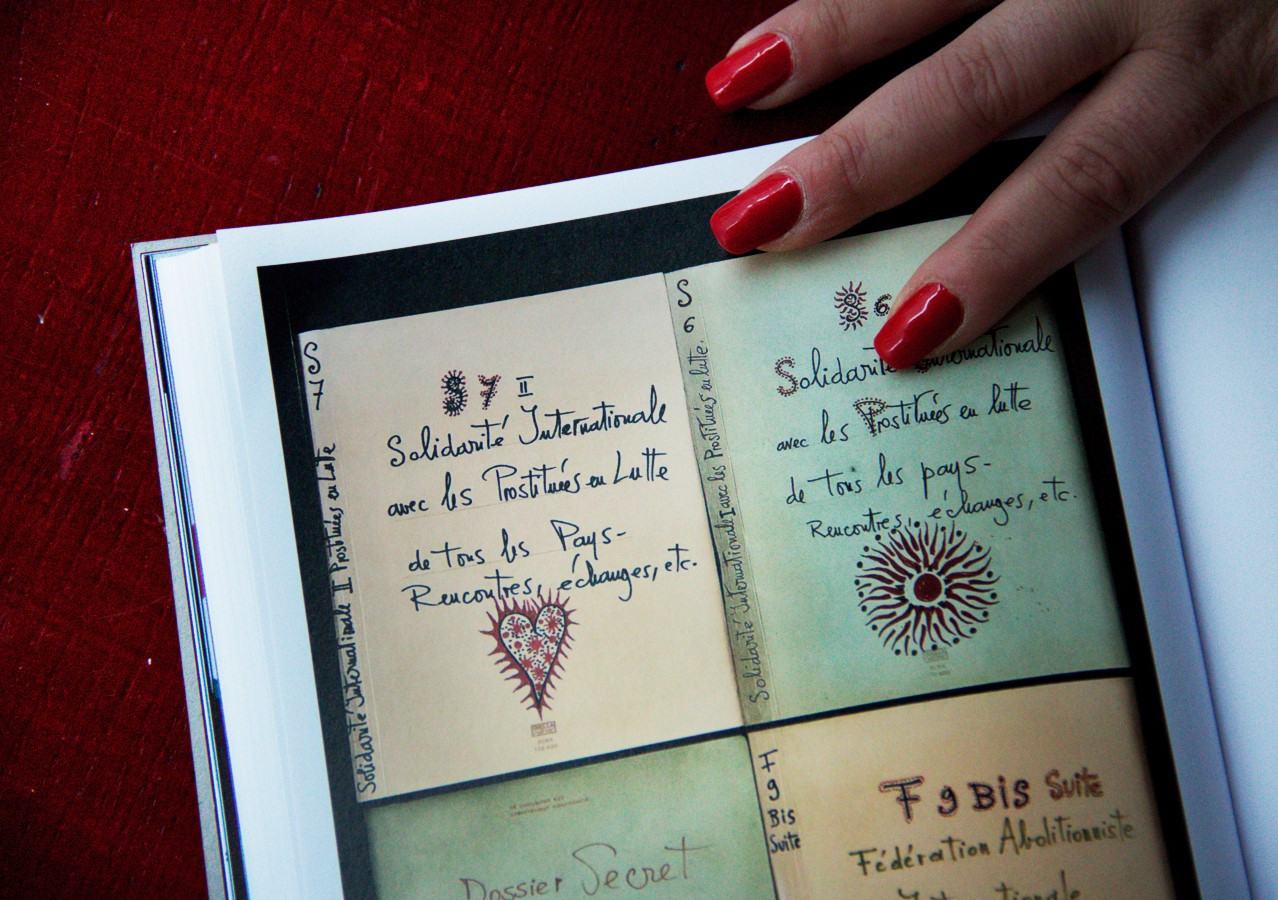 S
7
Solidarité Internationale II Prostituées en Lutte
S 7 II
Solidarité Internationale
avec les Prostituées en Lutte
de tous les Pays-
Rencontres, échanges, etc.
S
6
Solidarité Internationale I avec les Prostituées en lutte.
S 6
Solidarité Internationale
avec les Prostituées en lutte
de tous les pays-
Rencontres, échanges, etc.
Dossier Secret
F
9
Bis
Suite
F 9 Bis Suite
Fédération Abolitionniste
Internationale